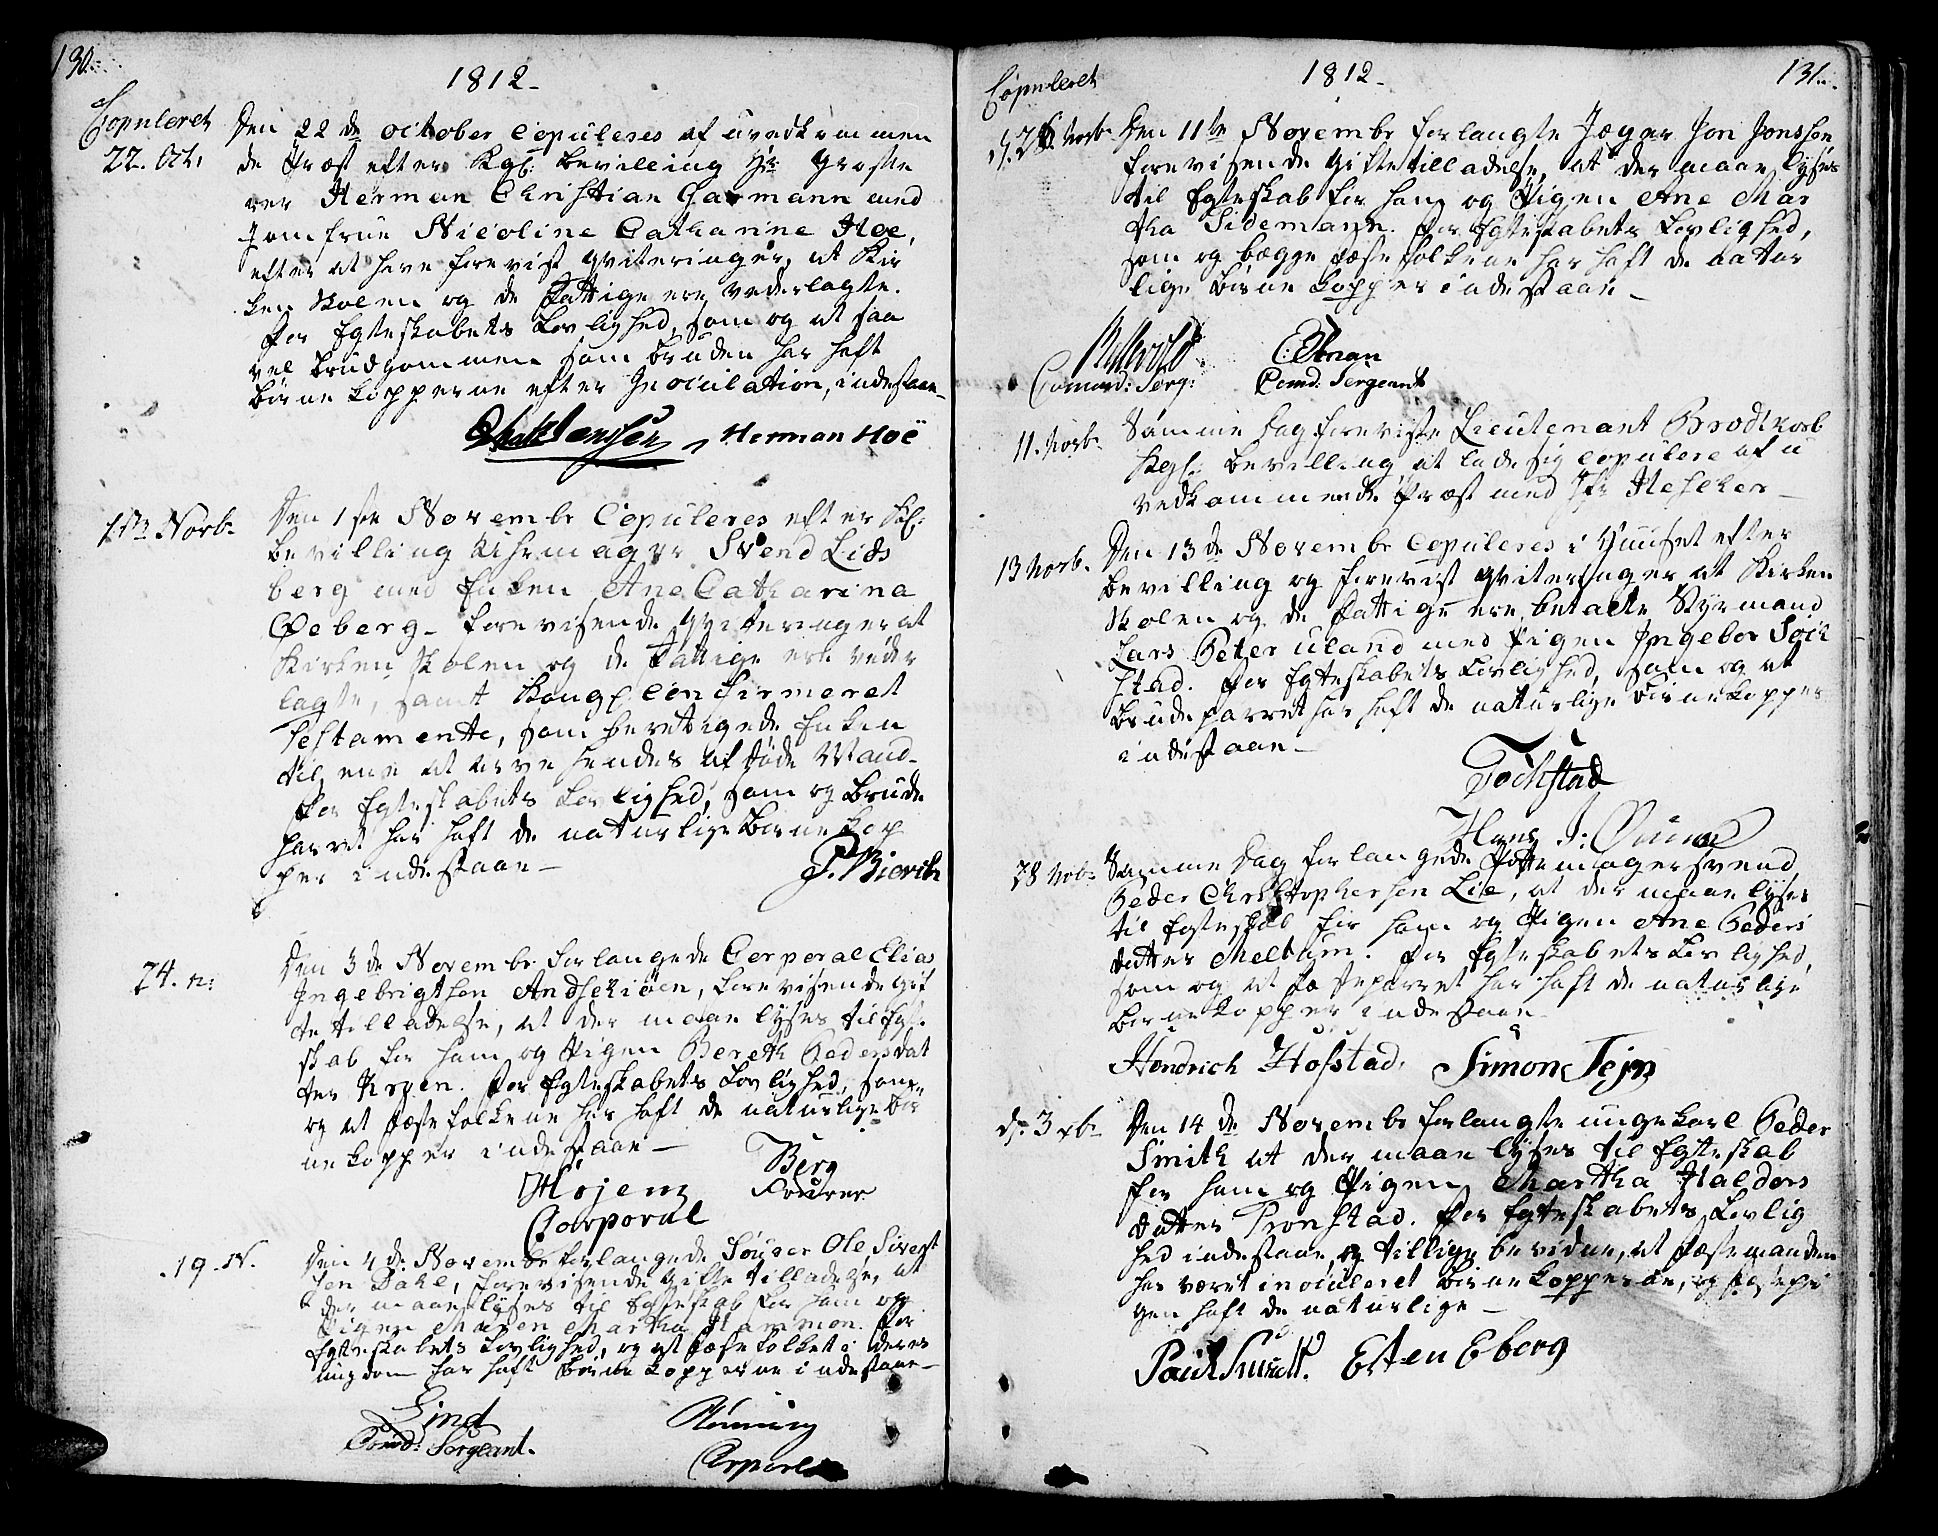 130.
1812.
Copuleret
22. Oct:
Den 22de October Copuleres af uvedkommen
de Præst efter Kgl: bevilling Hr. Grosse
rer Herman Christian Garmann med
Jomfrue Nicoline Catharine Hoe,
efter at have foreviist qviteringer, at Kir
ken Skolen og de Fattige ere vederlagte.
For Egteskabets Lovlighed, som og at saa
vel Brudgommen som Bruden har haft
Børnekopperne efter Inoculation, indestaae
Herman Hoë
1ste Novb.
Den 1ste Novembr Copuleres efter Kgl:
bevilling Uhrmager Svend Lids
berg med Enken Ane Catharina
Oeberg. forevisende qviteringer at
Kirken, Skolen og de Fattige ere veder
lagte, samt Kongl. Confirmeret
Testamente, som berettigede Enken
til ene at arve hendes afdøde Mand.
For Egteskabets Lovlighed, som og Brude
parret har haft de naturlige Børnekop
per indestaae
24. n:
Den 3de Novembr forlangede Corporal Elias
Ingebrigtsen Andschiøen, forevisende gif
te tilladelse, at der maae lyses til Egte
skab for ham og Pigen Bereth Pedersdat
ter Krgen. For Egteskabets Lovlighed, som
og at Fæstefolkene har haft de naturlige Bør
nekopper indestaae
Højem
Corporal
Berg
Fourer
19. N.
Den 4de Novembr forlangede Ole Sivert
sen Dahl, forevisende Gifte tilladelse, at
der maae lyses til Egteskab for ham og
Pigen Maren Martha Hammon. For
Egteskabets Lovlighed, og at Fæstefolket i deres
ungdom har haft Børnekopperne indestaae
Lind
Comd: Sergeant.
Rønning
Corporal
131.
1812.
Copuleret
Den 11te Novembr forlangte Jæger Jon Jonssen
forevisende Giftetilladelse, at der maae lyses
til Egteskab for ham og Pigen Ane Mar
tha Tidemann. For Egteskabets Lovlighed,
som og begge Fæstefolkene har haft de natur
lige Børnekopper indestaae
Comand: Serg:
Comd: Sergeant
11. Novb.
Samme Dag foreviste Lieutenant Brodtkorb
Kgl: bevilling at lade sig copulere af u
vedkommende Præst med Jfr Hescher
13 Novb.
Den 13de Novembr Copuleres i Huuset efter
bevilling og foreviist qviteringer at Kirken
Skolen og de Fattige ere betalte Styrmand
Lars Peter Uland med Pigen Ingebor Toch
stad. For Egteskabets Lovlighed, som og at
Brudeparret har haft de naturlige Børnekopper
indestaae
Tochstad
28 Novb.
Samme Dag forlangede Pottemagersvend
Peder Christophersen Lie, at der maae lyses
til Egteskab for ham og Pigen Ane Peders
datter Melbum. For Egteskabets Lovlighed,
som og at Fæsteparret har haft de naturlige
Børnekopper indestaae
Hendrich Hofstad. Simon
d: 3 xb.
Den 14de Novembr forlangte ungekarl Peder
Smith at der maae lyses til Egteskab
for ham og Pigen Martha Haldors
datter Tronstad. For Egteskabets Lovlig
hed indestaae, og tillige bevidne, at Fæstemanden
har været inoculeret Børnekopperne, og Fæstepi
gen haft de naturlige
Eberg